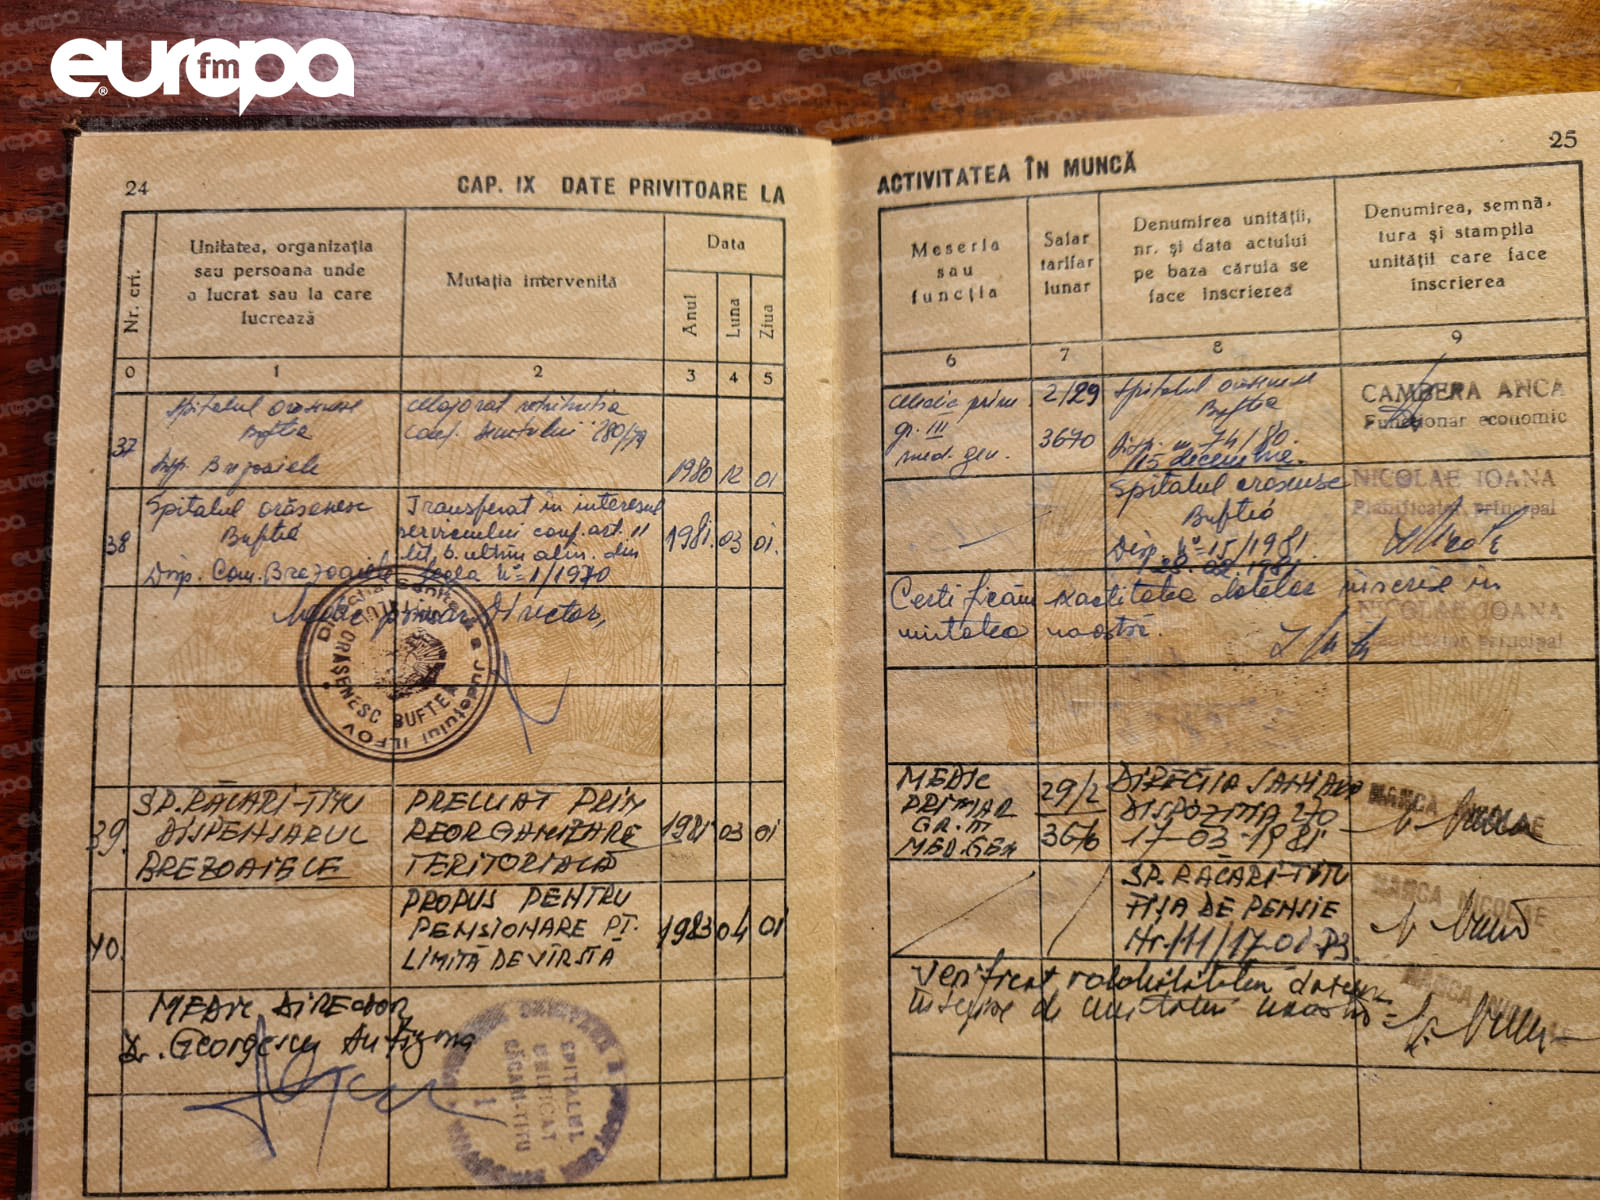 europa fm
24
CAP. IX DATE PRIVITOARE LA
Nr. crt.
Unitatea, organizația
sau persoana unde
a lucrat sau la care
lucrează
Mutația intervenită
Data
Anul
Luna
Ziua
0
1
2
3
4
5
37
Spitalul orășenesc
Buftea
Disp. Brezoaiele
Majorat retribuția
conf. decretului 280/79
1980
12
01
38
Spitalul orășenesc
Buftea
Disp. Com. Brezoaiele
Transferat în interesul
serviciului conf. art. 11
lit. b. ultim alin. din
Legea Nº 1/1970
1981.
03
01.
Medic primar Director,
Direcția Sanitară a Județului ILFOV
ORĂȘENESC BUFTEA
39.
SP. RĂCARI-TITU
DISPENSARUL
BREZOAIELE
PRELUAT PRIN
REORGANIZARE
TERITORIALĂ
1981
03
01
40.
PROPUS PENTRU
PENSIONARE PT.
LIMITĂ DE VÎRSTĂ
1983
04
01
MEDIC DIRECTOR
Dr. Georgescu
SPITALUL
UNIFICAT
RĂCARI-TITU
1
25
ACTIVITATEA ÎN MUNCĂ
Meseria
sau
funcția
Salar
tarifar
lunar
Denumirea unității,
nr. și data actului
pe baza căruia se
face înscrierea
Denumirea, semnă-
tura și stampila
unității care face
înscrierea
6
7
8
9
Medic prim.
gr. III
med. gen.
2/29
3670
Spitalul orășenesc
Buftea
Disp. nr. 74/80.
15 decembrie.
CAMBERA ANCA
Funcționar economic
Spitalul orășenesc
Buftea
Disp. Nº 15/1981.
28.02.1981
NICOLAE IOANA
Planificator principal
Certificăm exactitatea datelor înscrise în
unitatea noastră.
NICOLAE IOANA
Planificator principal
MEDIC
PRIMAR
GR. III
MED. GEN
29/2
3676
DIRECȚIA SANITARĂ
DISPOZIȚIA 270
17-03-1981
MANCA NICOLAE
SP. RĂCARI-TITU
FIȘA DE PENSIE
Nr. 111/17-01-83.
MANCA NICOLAE
Verificat valabilitatea datelor
înscrise de unitatea noastră
MANCA NICOLAE